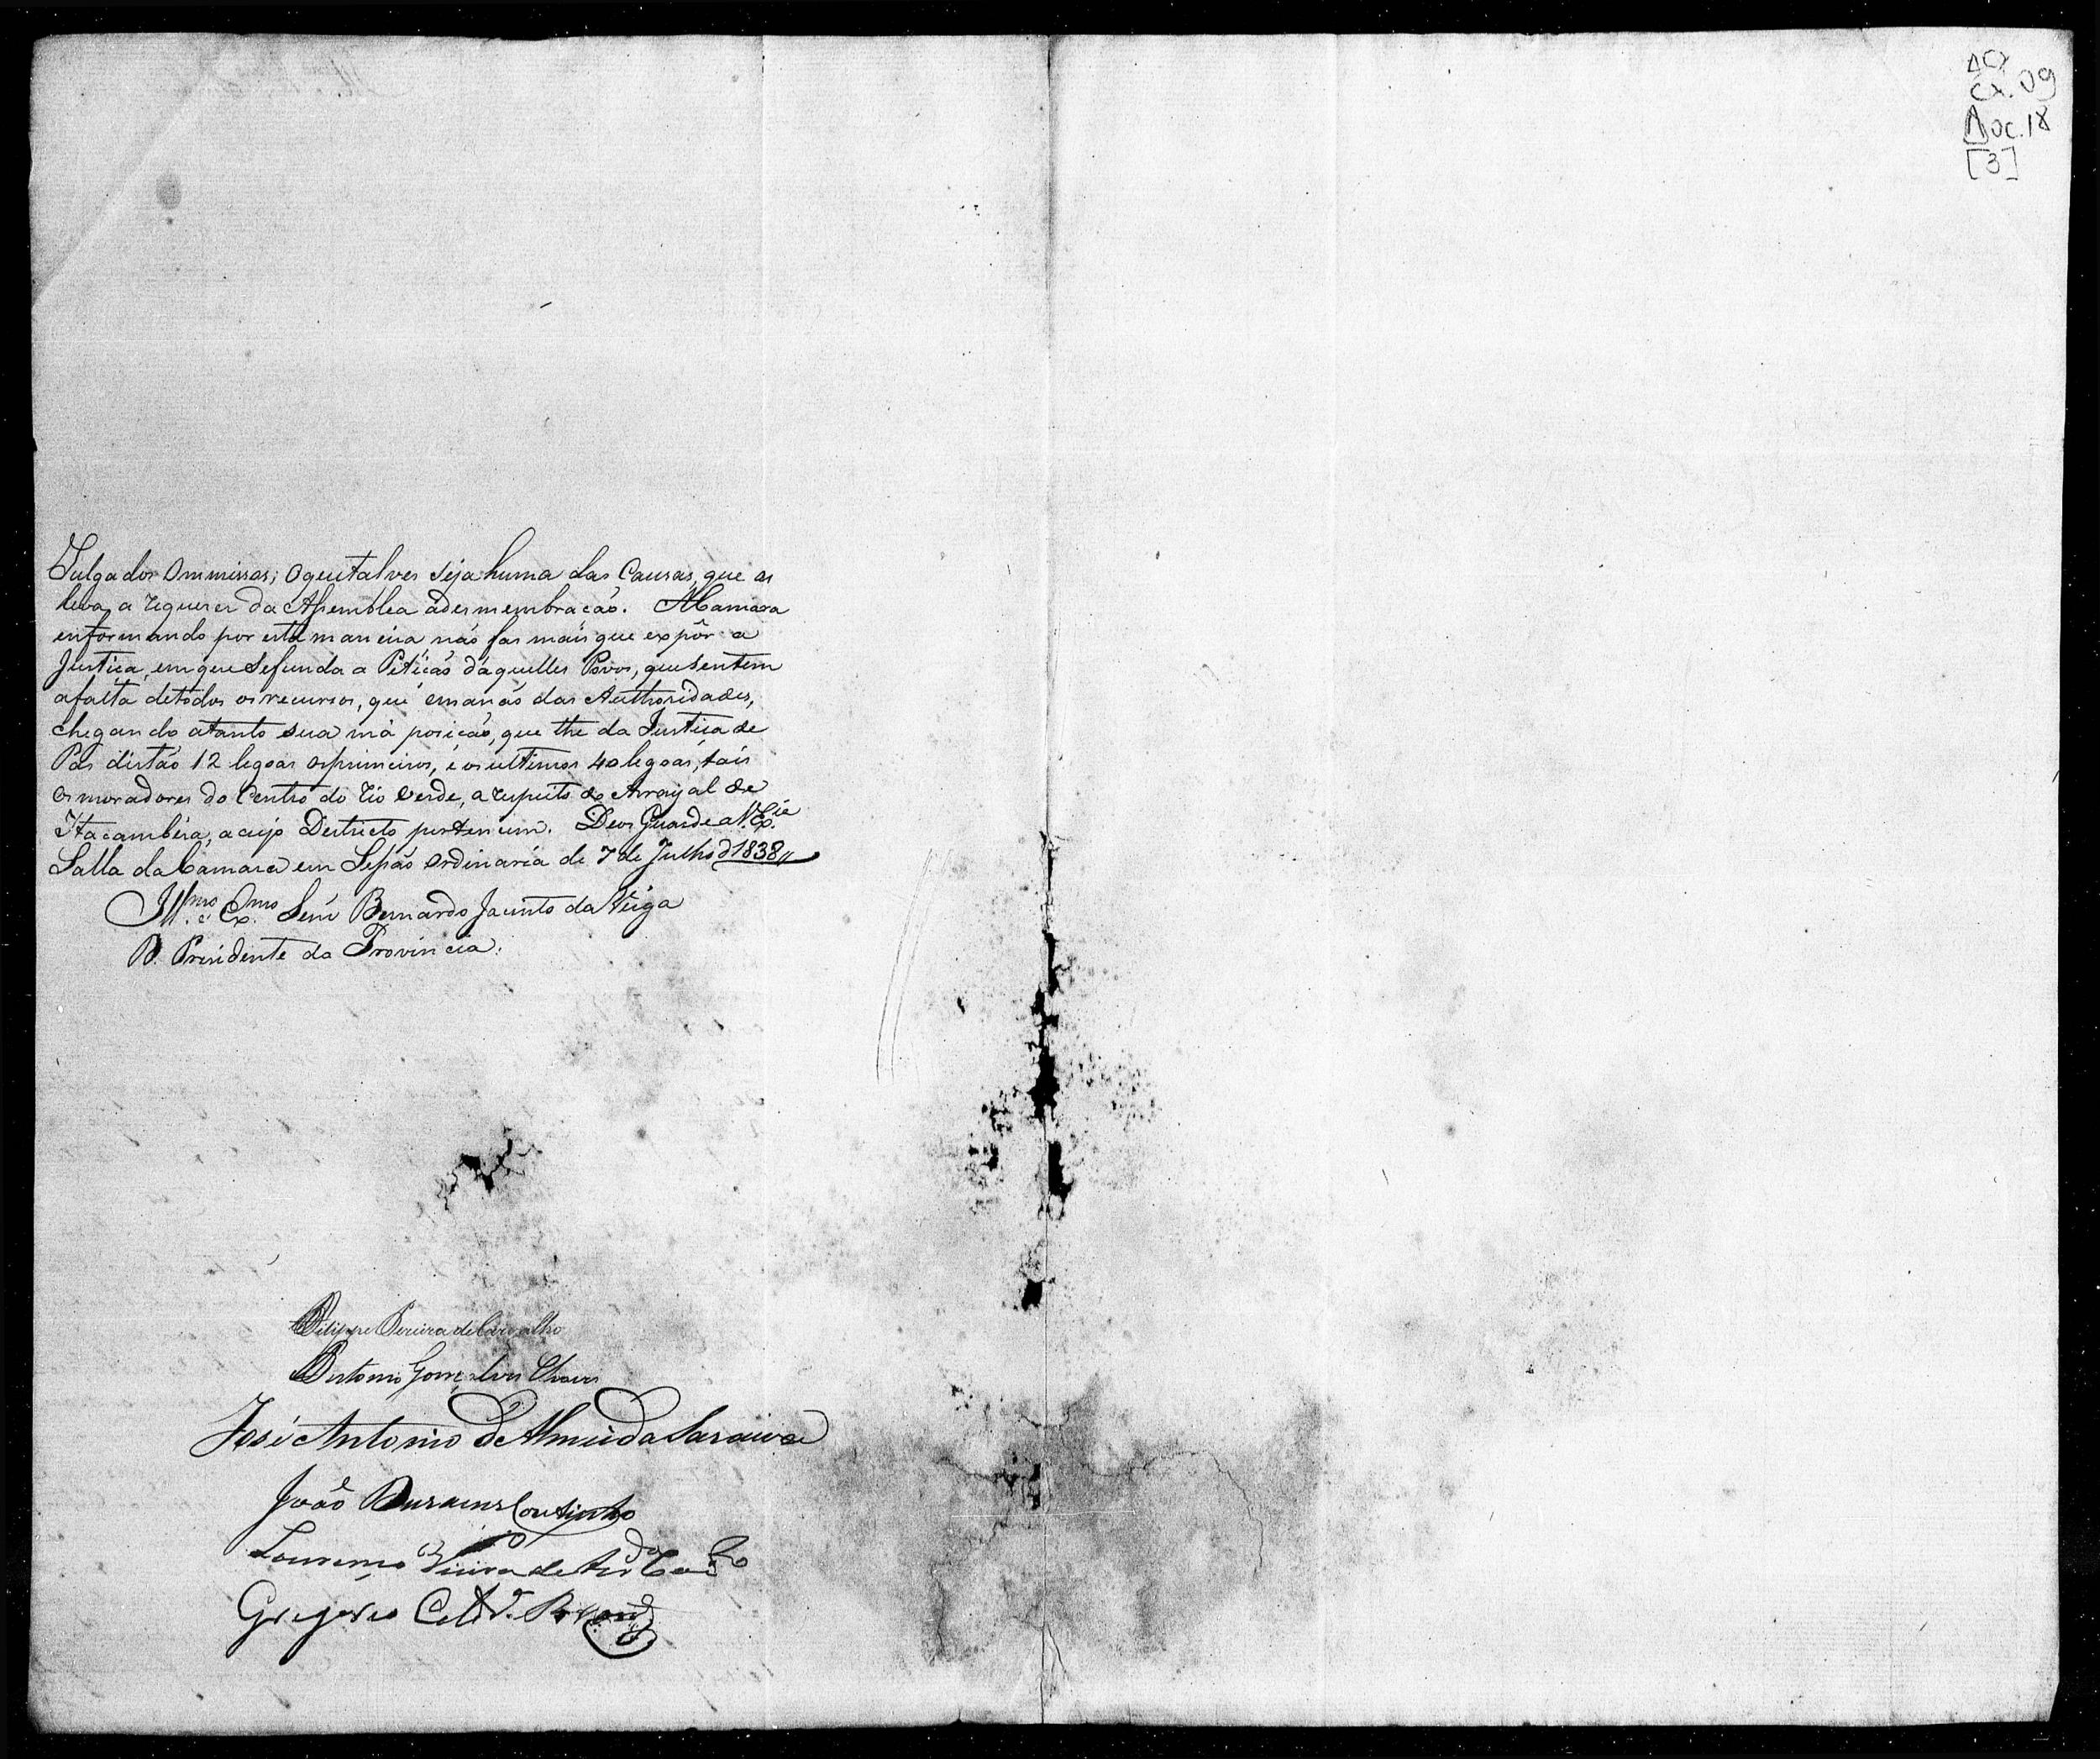 Cx. 09
Doc. 18
[3]
Julgados Ommissos; o que talves seja huma das Causas, que os
leva a requerer da Assemblea a desmembração. A Camara
enformando por esta maneira não fas mais que expôr a
Justiça, em que se funda a Petição d'aquelles Povos, que sentem
a falta de todos os recursos, que emanão das Authoridades,
chegando a tanto sua má posição, que the da Justiça de
Pas distão 12 legoas os primeiros, e os ultimos 40 legoas, tais
os moradores do Centro do Rio Verde, a respeito do Arrayal de
Itacambira, a cujo Destricto pertencem. Deos Guarde a V. Ex.cia
Salla da Camara em Sessão Ordinaria de 7 de Julho d 1838
Ill.mo e Ex.mo Senr Bernardo Jacinto da Veiga
P. Presidente da Provincia.
Felippe Pereira de Carvalho
Antonio Gonçalves Chaves
José Antonio de Almeida Saraiva
João Durains Coutinho
Lourenço Vieira de
Gregorio